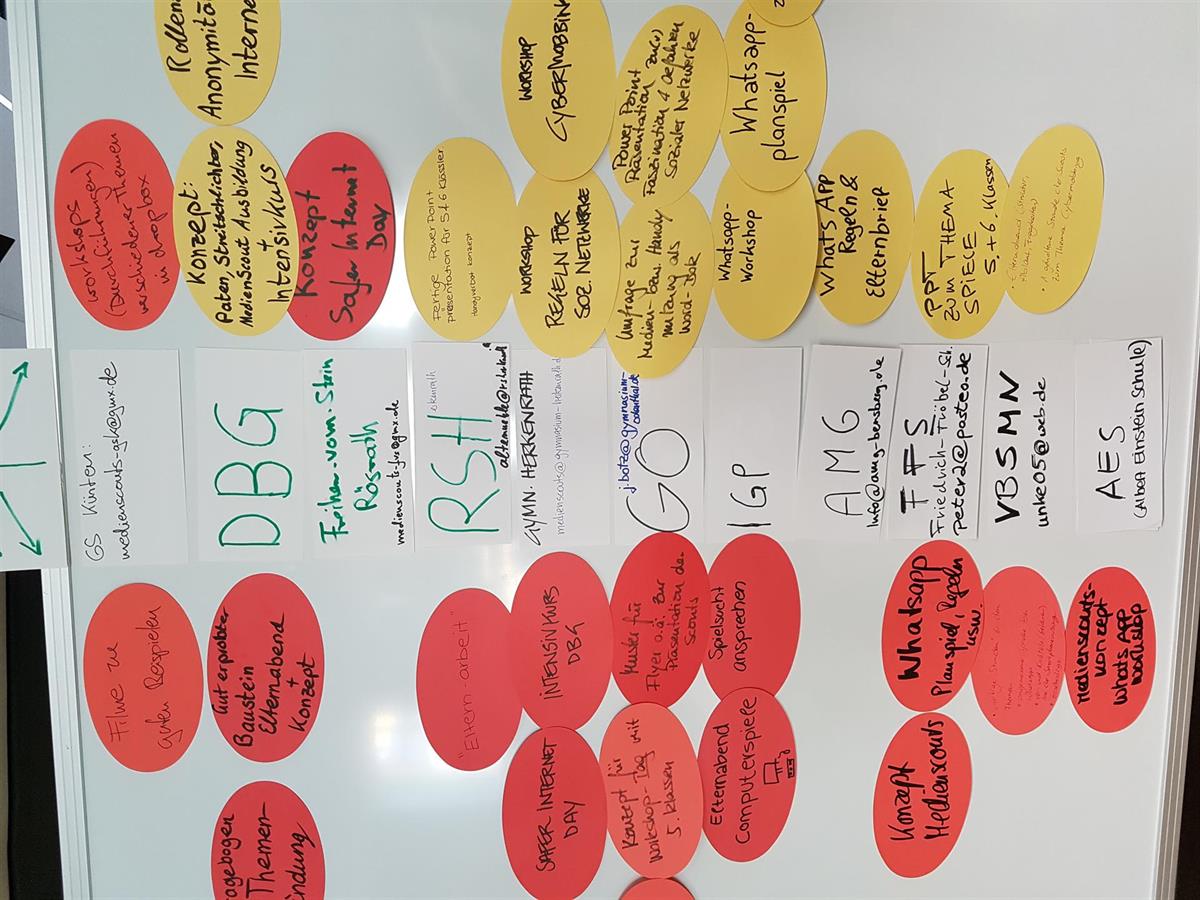 Anonymität
Internet
WORKSHOP
CYBERMOBBING
Power Point
Präsentation zu(r)
Faszination & Gefahren
Sozialer Netzwerke
Whatsapp-
planspiel
Workshops
(Durchführungen)
verschiedener Themen
in dropbox
Konzept:
Paten, Streitschlichter,
Medienscout Ausbildung
+
Intensivkurs
Konzept
Safer Internet
Day
Fertige PowerPoint
präsentation für 5 & 6 Klässler
Handyverbot konzept
WORKSHOP
REGELN FÜR
SOZ. NETZWERKE
Umfrage zur
Medien- bzw. Handy
nutzung als
Word-Dok
Whatsapp-
Workshop
Whats App
Regeln &
Elternbrief
PPT
ZUM THEMA
SPIELE
5.+6. Klassen
zum Thema Cybermobbing
GS Kürten:
medienscouts-gsk@gmx.de
DBG
Freiherr-vom-Stein
Rösrath
medienscouts-fvs@gmx.de
RSH
GYMN. HERKENRATH
medienscouts@gymnasium-herkenrath.de
j.botz@gymnasium-
odenthal.de
GO
IGP
AMG
info@amg-bensberg.de
FFS
Friedrich-Fröbel-Sch.
peter2@posteo.de
VBSMN
unke05@web.de
AES
(Albert Einstein Schule)
Filme zu
guten Beispielen
Gut erprobter
Baustein
Elternabend
+
Konzept
"Eltern-arbeit"
INTENSIVKURS
DBG
Muster für
Flyer o.ä. zur
Präsentation der
Scouts
Spielsucht
ansprechen
Whatsapp
Planspiel, Regeln
usw.
Medienscouts-
konzept
Whats App
workshop
Themen-
SAFER INTERNET
DAY
Konzept für
Workshop-Tag mit
5. Klassen
Elternabend
Computerspiele
Konzept
Medienscouts